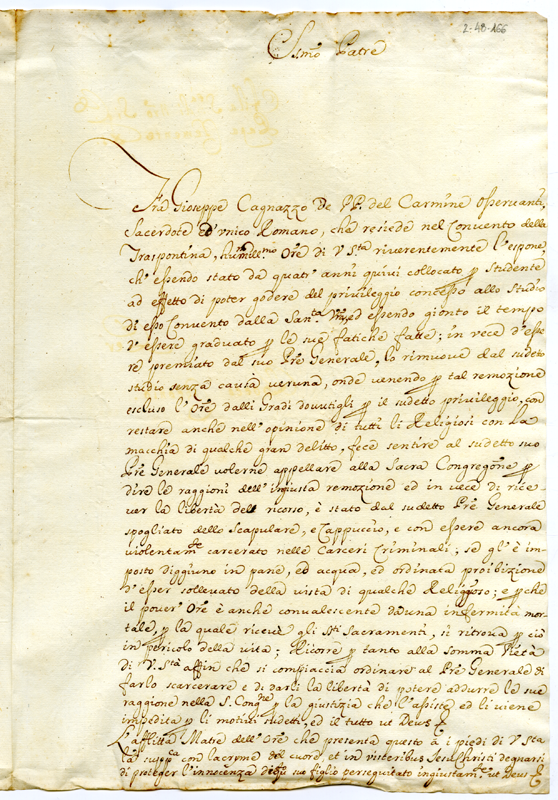 2-48-166
Bs̃mo Patre
Fra Gioseppe Cagnazzo De PP. del Carmine Osservanti,
Sacerdote ed unico Romano, che resiede nel Convento della
Traspontina, humilled.mo Ore di V Sta riverentemente l'espone,
ch'essendo stato da quatr'anni quivi collocato ꝑ studente
ad effetto di poter godere del privileggio concesso allo studio
di esso Convento dalla San.ta Vr̃a, ed essendo gionto il tempo
d'essere graduato ꝑ le sue fatiche fatte; in vece d'esse
re premiato dal suo Pr̃e Generale, lo rimuove dal sudeto
studio senza causa veruna, onde venendo ꝑ tal remozione
escluso l'Ore dalli Gradi dovutigli ꝑ il sudetto privileggio, con
restare anche nell'opinione di tutti li Religiosi con la
macchia di qualche gran delitto, fece sentire al sudetto suo
Pr̃e Generale volerne appellare alla Sacra Congregõne ꝑ
dire le raggioni dell'ingiusta remozione ed in vece di rice-
ver la libertà del ricorso, è stato dal sudetto Pr̃e Generale
spogliato dello Scapulare, e Cappuccio, e con essere ancora
violentam.te carcerato nelle Carceri Criminali; se gl'è im-
posto diggiuno in pane, ed acqua, ed ordinata proibizione
d'esser sollevato della vista di qualche Religioso; e ꝑche
il pover'Ore è anche convalescente da una infermità mor-
tale, ꝑ la quale riceuè gli Sti Sacramenti, si ritrova ꝑ ciò
in pericolo della vita; Ricorre ꝑ tanto alla somma Pietà
di V. Stà affin che si compiaccia ordinare al Pr̃e Generale di
farlo scarcerare e di darli la libertà di potere addurre le sue
raggione nella S. Congre ꝑ la giustizia che l'assiste ed li viene
impedita ꝑ li motivi sudetti, ed il tutto ut Deus &
L'afflitta Matre dell'Ore che presenta questo à i piedi di V Sta
la supp.ca con lacryme del cuore, et in visceribus Jesu Christi degnarsi
di proteger l'innocenza di suo figlio perseguitato ingiustam.te ut Deus &